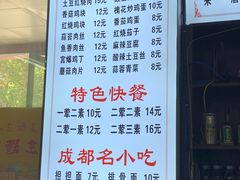 土豆红烧肉
香菇鸡块 10元
红烧鸡块 10元
蒜苔肉丝 10元
鱼香肉丝 10元
宫爆鸡丁 10元
蘑菇肉片 10元
槐花炒鸡蛋 8元
番茄鸡蛋 8元
红烧茄子 8元
麻辣豆腐 8元
酸辣土豆丝 8元
蒜蓉青菜 8元
特色快餐
一荤二素 10元 二荤二素 14元
一荤三素 12元 二荤三素 16元
成都名小吃
担担面 7元 排骨面 10元